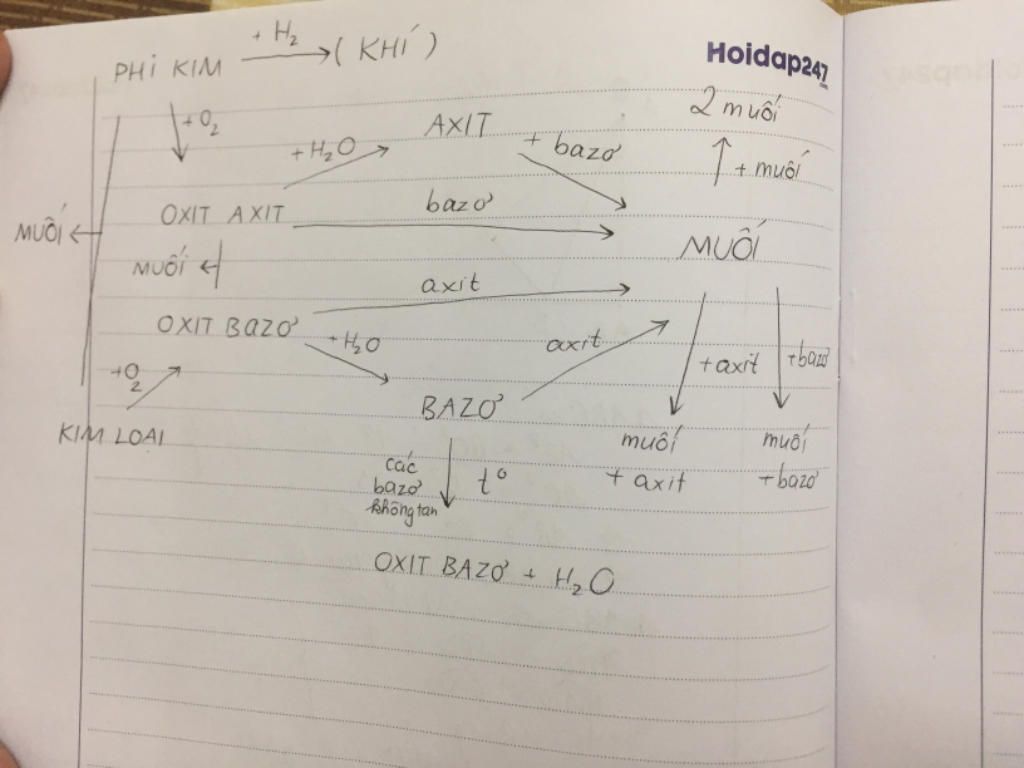 PHI KIM + H₂ → ( KHÍ )
Hoidap247
+ O₂
AXIT
2 muối
+ H₂O
+ bazơ
+ muối
OXIT AXIT
bazơ
MUỐI ←
MUỐI
MUỐI ←
axit
OXIT BAZƠ
+ H₂O
axit
+ axit
+ bazơ
+O₂
KIM LOAI
BAZƠ
muối
+ axit
muối
+ bazơ
các
bazơ
không tan
t°
OXIT BAZƠ + H₂O